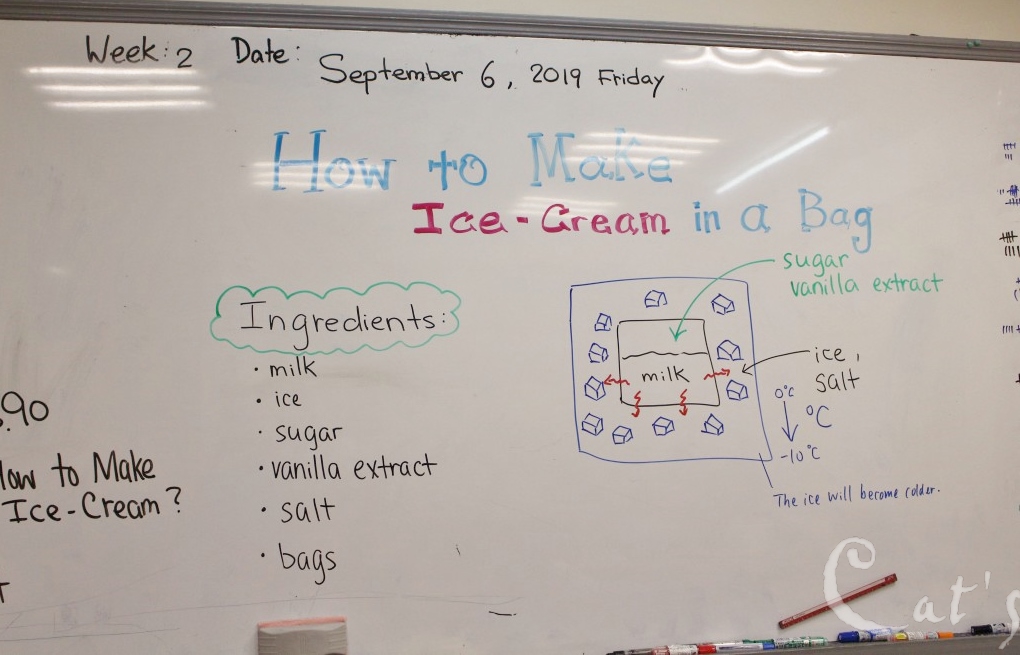 Week: 2 Date: September 6, 2019 Friday
How to Make
Ice-Cream in a Bag
sugar
vanilla extract
Ingredients:
· milk
· ice
· sugar
· vanilla extract
· salt
· bags
milk
ice,
salt
0°C
°C
-10°C
The ice will become colder.
90
How to Make
Ice-Cream?
Cat's